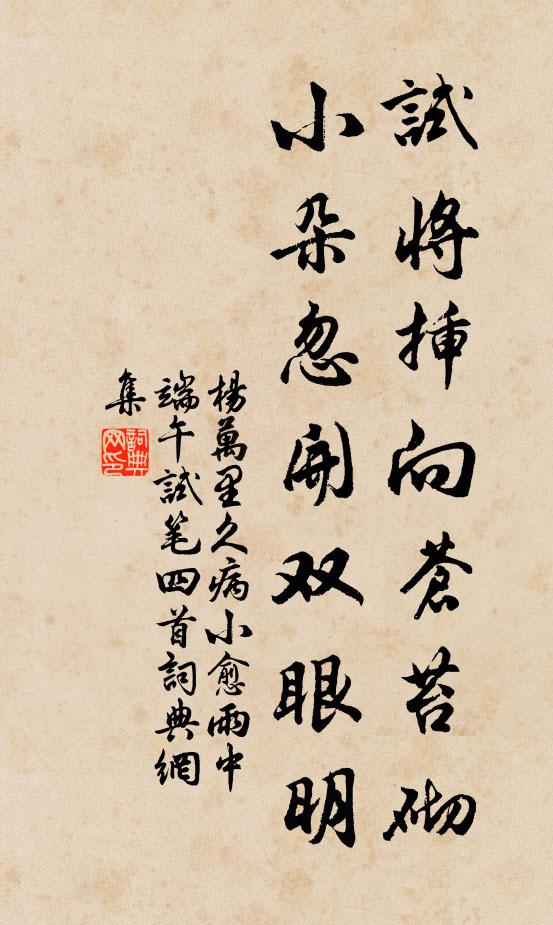 試將插向蒼苔砌
小朵忽開双眼明
楊萬里久病小愈雨中
端午試笔四首詞典網
集
詞典
网印